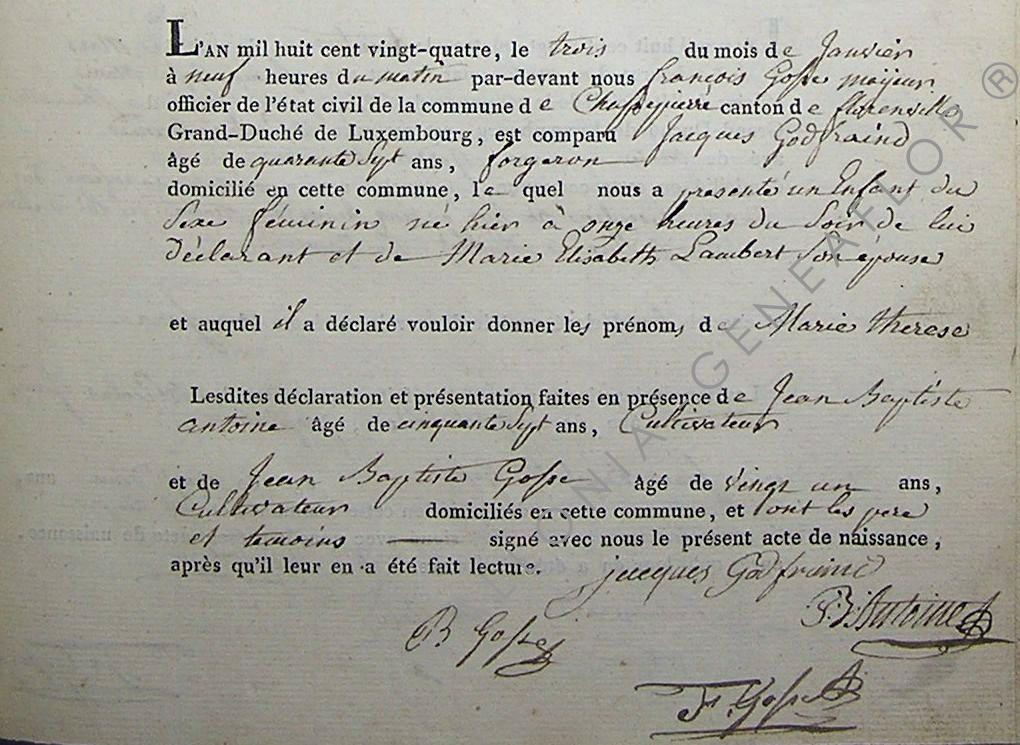 L'AN mil huit cent vingt-quatre, le trois du mois de Janvier
à neuf heures du matin par-devant nous françois Gosse mayeur
officier de l'état civil de la commune de Chassepierre canton de florenville
Grand-Duché de Luxembourg, est comparu Jacques Godfraind
âgé de quarante Sept ans, forgeron
domicilié en cette commune, le quel nous a presenté un Enfant du
Sexe féminin né hier à onze heures du Soir de lui
déclarant et de Marie Elisabeth Lambert Son épouse
et auquel il a déclaré vouloir donner les prénoms de Marie therese
Lesdites déclaration et présentation faites en présence de Jean Baptiste
antoine âgé de cinquante Sept ans, Cultivateur
et de Jean Baptiste Gosse âgé de vingt un ans,
Cultivateur domiciliés en cette commune, et ont les pere
et temoins signé avec nous le présent acte de naissance,
après qu'il leur en a été fait lecture. jacques Godfraind
J.B. Antoine
B Gosse
F. Gosse
LUCONIA GENEAFLOR ®